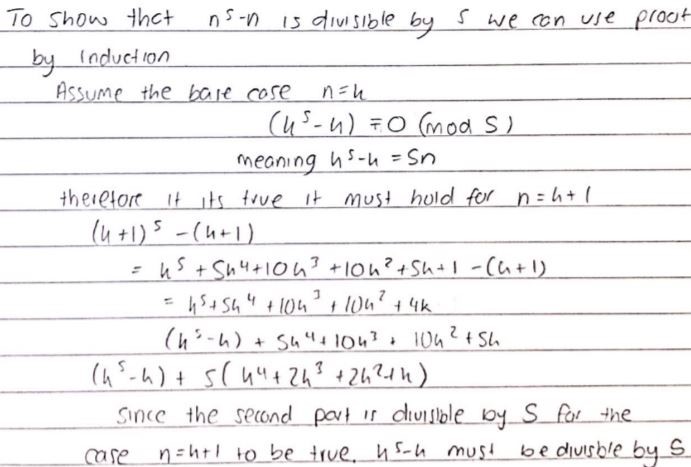 To show that n⁵-n is divisible by 5 we can use proof
by induction
Assume the base case n=k
(k⁵-k) ≡ 0 (mod 5)
meaning k⁵-k = 5n
therefore if its true it must hold for n = k+1
(k+1)⁵ - (k+1)
= k⁵ + 5k⁴ + 10k³ + 10k² + 5k + 1 - (k+1)
= k⁵ + 5k⁴ + 10k³ + 10k² + 4k
(k⁵-k) + 5k⁴ + 10k³ + 10k² + 5k
(k⁵-k) + 5(k⁴ + 2k³ + 2k² + k)
Since the second part is divisible by 5 for the
case n=k+1 to be true, k⁵-k must be divisble by 5